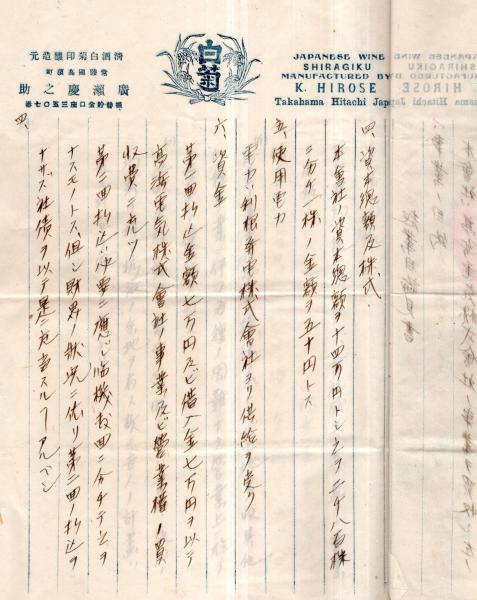 清酒白菊印醸造元
常陸國高濱町
廣瀬慶之助
振替貯金口座三五〇七番
白菊
JAPANESE WINE
SHIRAGIKU
MANUFACTURED BY
K. HIROSE
Takahama Hitachi Japan
四、資本総額及株式
本會社ノ資本総額ヲ十四万円トシ之ヲ二千八百株
ニ分チ一株ノ金額ヲ五十円トス
五、使用電力
電力ハ利根発電株式會社ヨリ供給ヲ受ク
六、資金
第一回拂込金額七万円及ビ借入金七万円ヲ以テ
高浜電気株式會社ノ事業及ビ営業権ノ買
収費ニ充ツ
第二回拂込ハ必要ニ應ジ臨機数回ニ分チテ之ヲ
ナスモノトス但シ財界ノ状況ニ依リ第二回ノ拂込ヲ
ナサズ社債ヲ以テ是ニ充当スルコトアルベシ
四